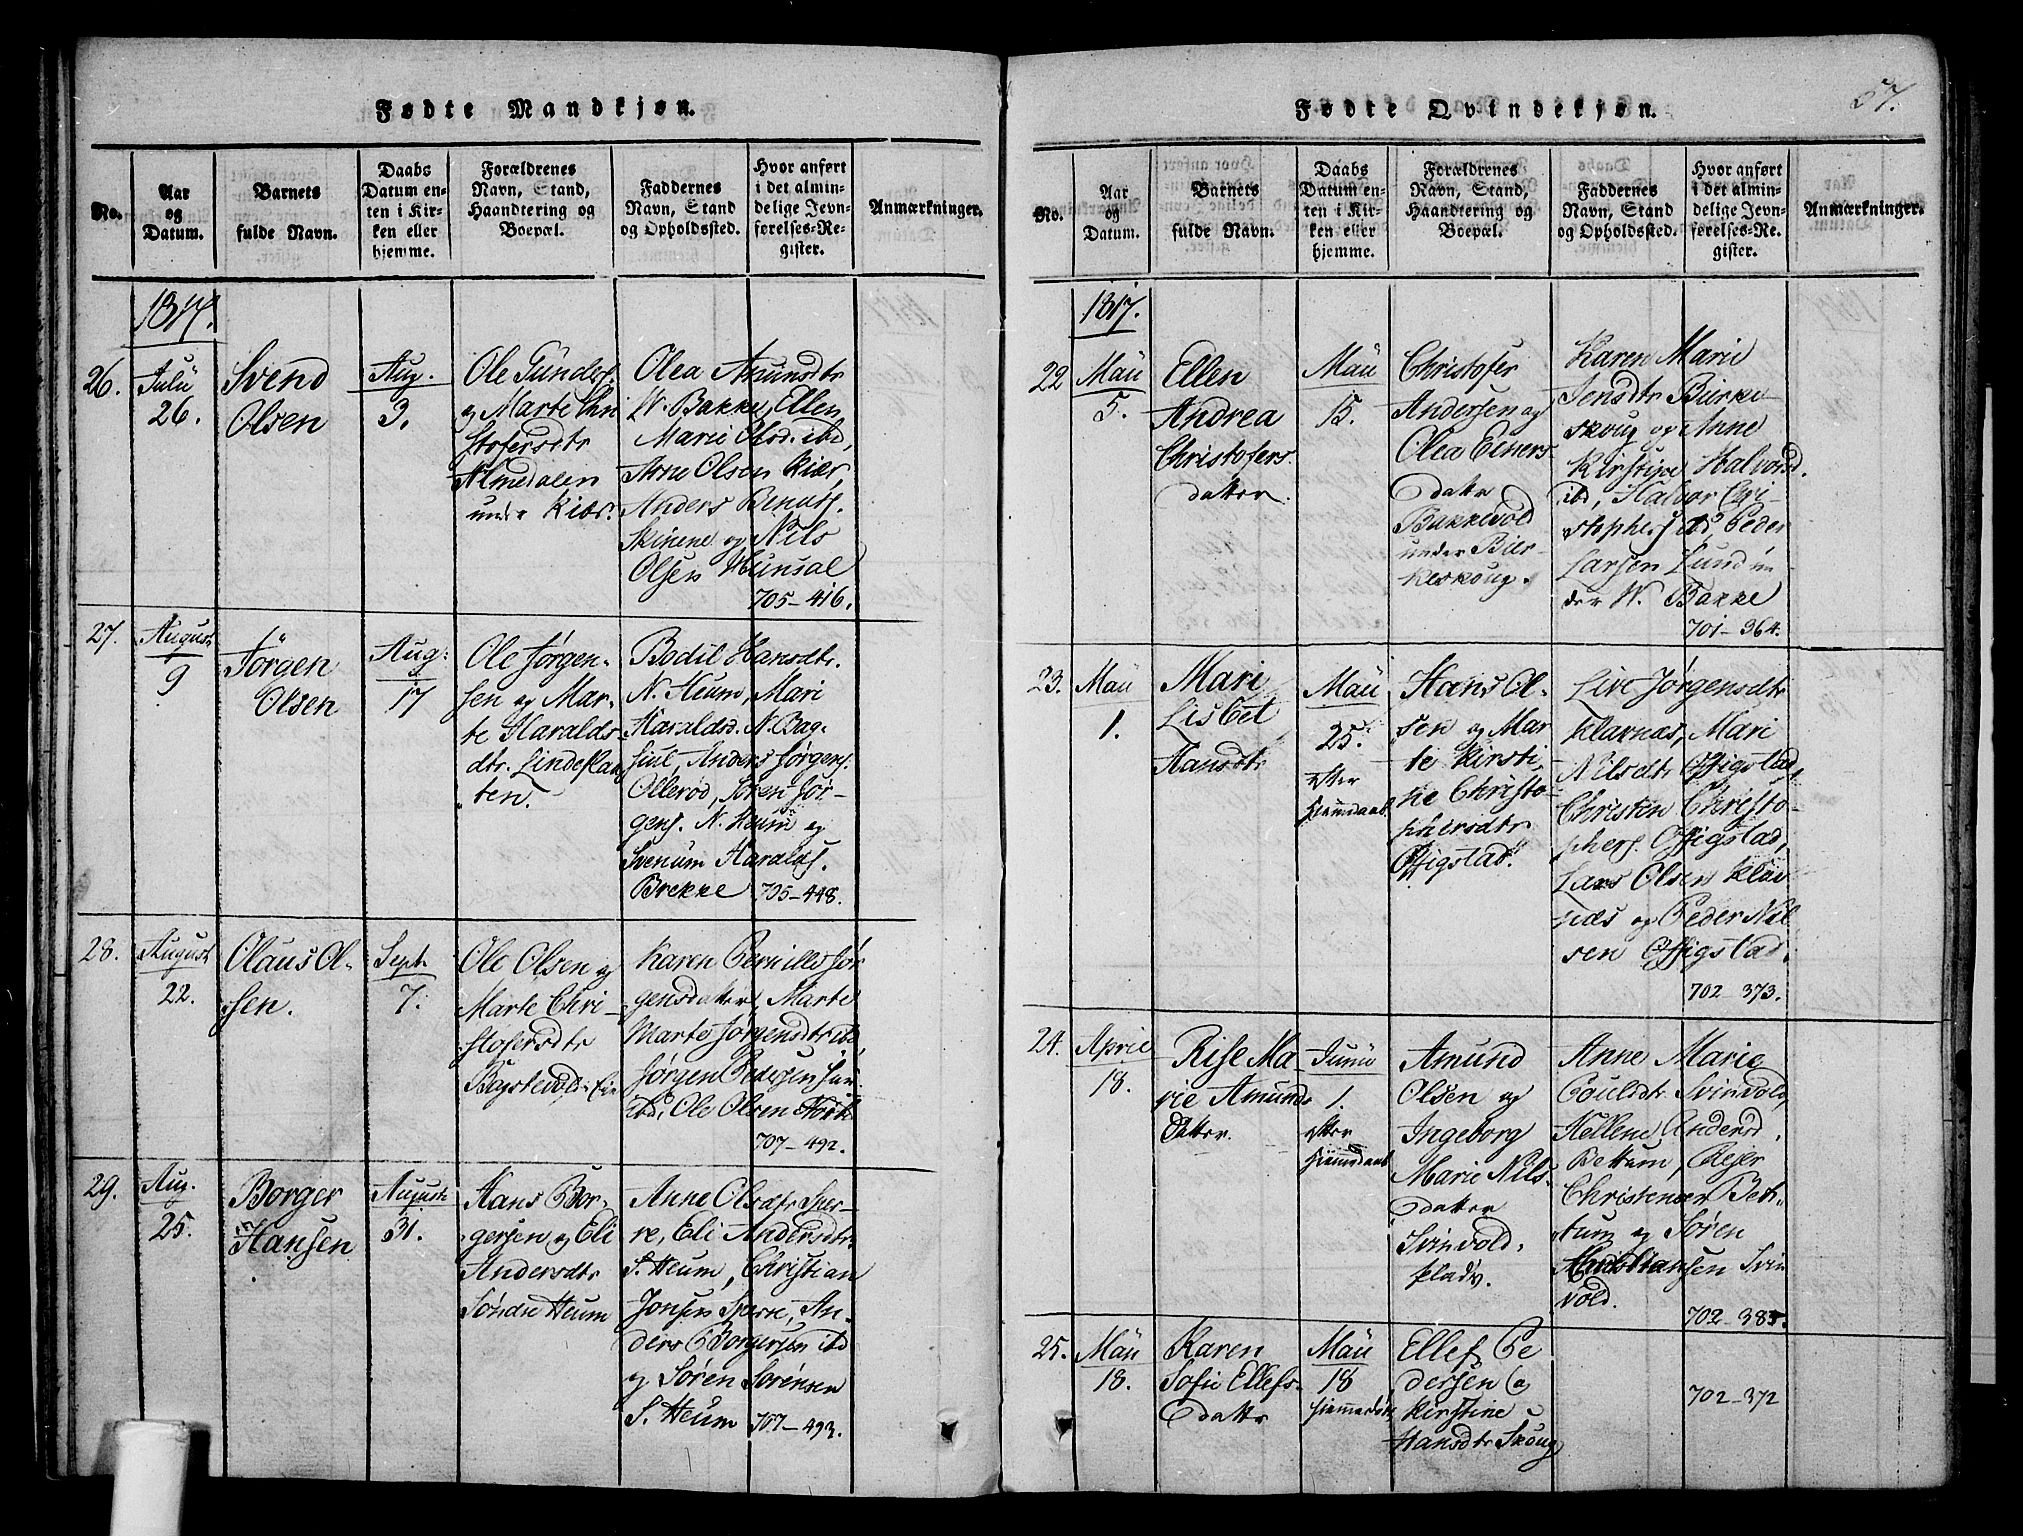 Fødte Mandkjøn.
No.
Aar
og
Datum.
Barnets
fulde Navn.
Daabs
Datum en-
ten i Kir-
ken eller
hjemme.
Forældrenes
Navn, Stand,
Haandtering og
Boepæl.
Faddernes
Navn, Stand
og Opholdssted.
Hvor anført
i det almin-
delige Jevn-
førelses-Re-
gister.
Anmærkninger.
1817.
26.
Julii
26.
Svend
Olsen
Aug.
3.
Ole Gunders.
og Marte Chri
stofersdtr
Almedalen
under Kiær.
Olea Amunsdtr
N. Bakke, Ellen
Marie Olsd. ibd,
Arne Olsen Kiær,
Anders Bentss.
Skinene og Nils
Olsen Hunsal
705-416.
27.
August
9
Jörgen
Olsen
Aug:
17
Ole Jørgen-
sen og Mar-
te Haralds-
dtr. Lindeslaa
ten.
Bodil Hansdtr.
N. Heum, Mari
Haraldsd. N. Bag-
Anders Jørgens.
Ollerød, Søren Jør-
gens. N. Heum og
Svenum Haralds.
Brekke
705-448.
28.
August
22.
Olaus Ol-
sen.
Sept.
7.
Ole Olsen og
Marte Chri-
stofersdtr
Karen Pernille Jør
gensdatter, Marte
Marte Jørgensdtr ibd,
Jørgen Pedersen
ibd, Ole Olsen
707-492.
29.
Aug.
25.
Borger
Hansen
August
31.
Hans Bor-
gersen og Eli
Andersdtr
Søndre Heum
Anne Olsdtr Sper-
re, Eli Andersdtr
S. Heum, Christian
Jonsen Sperre, An-
ders Borgersen ibd
og Søren Sørensen
S. Heum
707-493.
Fødte Qvindekjøn.
57.
No.
Aar
og
Datum.
Barnets
fulde Navn.
Daabs
Datum en-
ten i Kir-
ken eller
hjemme.
Forældrenes
Navn, Stand,
Haandtering og
Boepæl.
Faddernes
Navn, Stand
og Opholdssted.
Hvor anført
i det almin-
delige Jevn-
førelses-Re-
gister.
Anmærkninger.
1817.
22
Maii
5.
Ellen
Andrea
Christofers.
datter.
Maii
15.
Christofer
Andersen og
Olea Einers
datter
Bakkevold
under Bier-
keskoug.
Karen Marie
Jensdtr Birke
skoug og Anne
Kirstine Halvorsd.
ibd, Halvor Chri-
stophers. ibd, Peder
Larsen Lund un
der N. Bakke
701-364.
23.
Maii
1.
Mari
Lisbet
Hansdtr
Maii
25.
efter
Hiemdaab.
Hans Ol-
sen og Mar
te Kirsti-
ne Christo-
phersdtr
Offigstad.
Live Jørgensdtr
Klavnæs, Mari
Nilsdtr Offigstad,
Christen Christo-
phers. Offigstad,
Lars Olsen Klav
næs og Peder Nil
sen Offigstad.
702-373.
24.
April
18.
Rise Ma-
rie Amunds
datter.
Junii
1.
efter
Hiemdaab
Amund
Olsen og
Ingeborg
Marie Nils-
datter
Svinvold-
pladr.
Anne Marie
Poulsdtr Svinvold,
Hellene Andersd.
Bettum, Rejer
Christensen Bet-
tum og Søren
Svin
vold.
702-385.
25.
Maii
18.
Karen
Sofie Ellefs-
datter
Maii
18
Hiemmedøbt
Ellef Pe
dersen og
Kirstine
Hansdtr Skoug
702-372